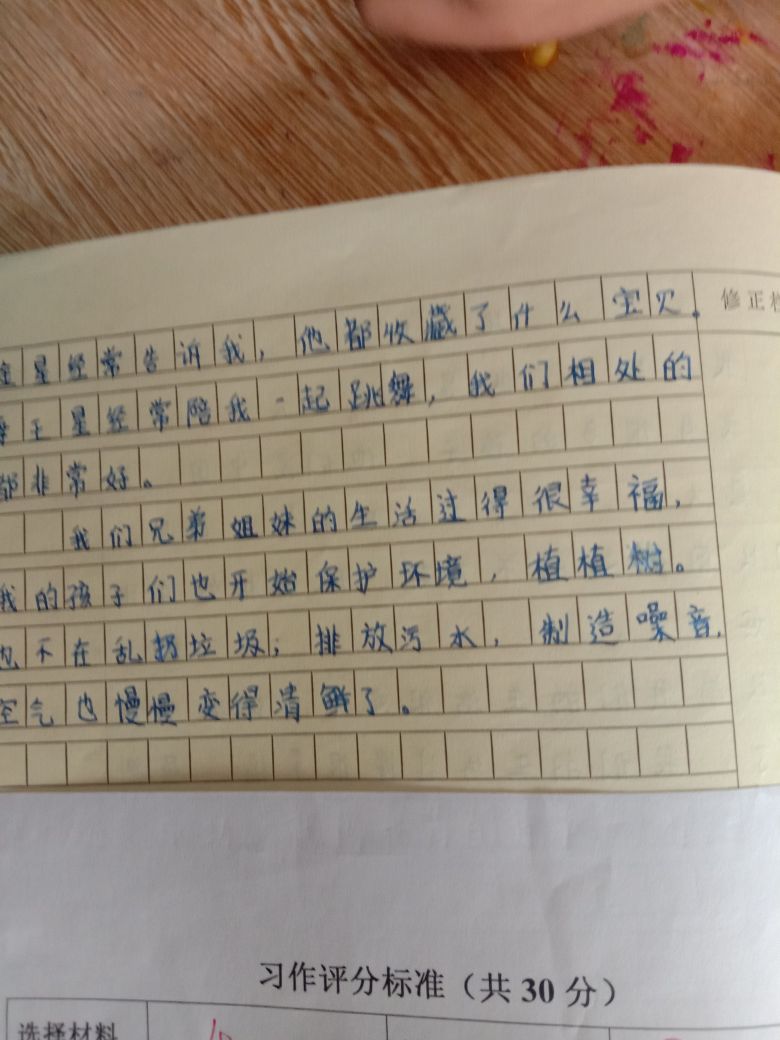 星经常告诉我，他都收藏了什么宝贝。
修正栏
王星经常陪我一起跳舞，我们相处的
都非常好。
我们兄弟姐妹的生活过得很幸福，
我的孩子们也开始保护环境，植植树。
也不在乱扔垃圾；排放污水，制造噪音，
空气也慢慢变得清鲜了。
习作评分标准（共30分）
选择材料